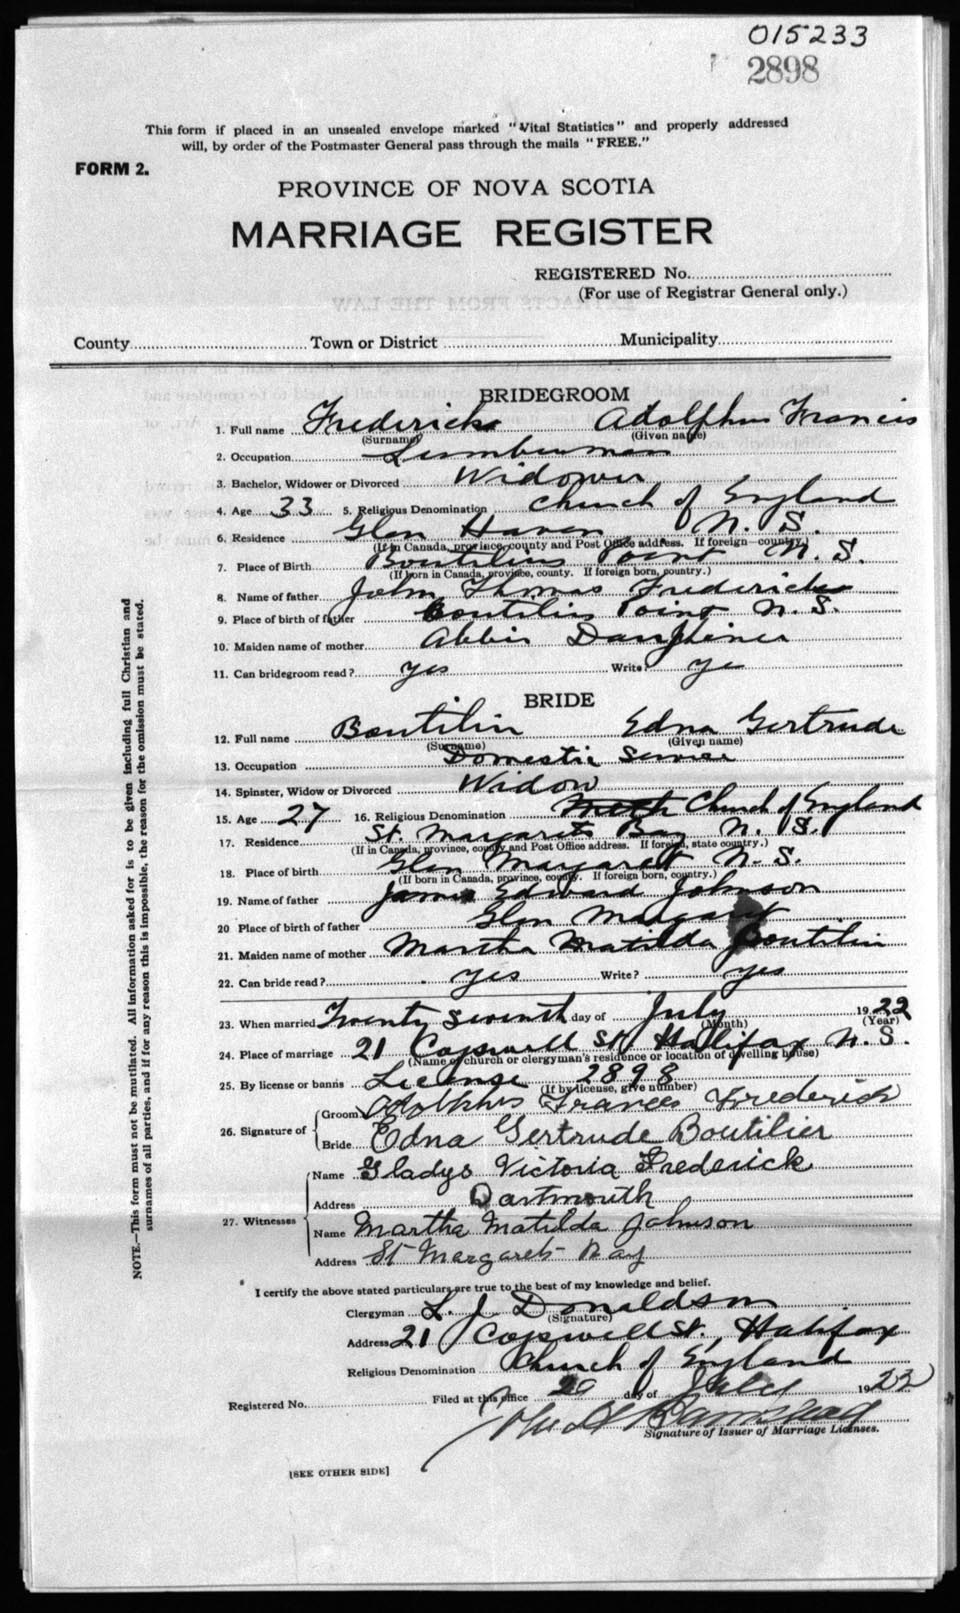 015233
2898
This form if placed in an unsealed envelope marked "Vital Statistics" and properly addressed
will, by order of the Postmaster General pass through the mails "FREE."
FORM 2.
PROVINCE OF NOVA SCOTIA
MARRIAGE REGISTER
REGISTERED No.
(For use of Registrar General only.)
County Town or District Municipality
BRIDEGROOM
1. Full name Fredericks Adolphus Francis
(Surname) (Given name)
2. Occupation Lumberman
3. Bachelor, Widower or Divorced Widower
4. Age 33 5. Religious Denomination Church of England
6. Residence Glen Haven N. S.
(If in Canada, province, county and Post Office address. If foreign country.)
7. Place of Birth Boutiliers Point N. S.
(If born in Canada, province, county. If foreign born, country.)
8. Name of father John Thomas Fredericks
9. Place of birth of father Boutiliers Point N. S.
10. Maiden name of mother Abbie Dauphinee
11. Can bridegroom read? yes Write? yes
BRIDE
12. Full name Boutilier Edna Gertrude
(Surname) (Given name)
13. Occupation Domestic Service
14. Spinster, Widow or Divorced Widow
15. Age 27 16. Religious Denomination Church of England
17. Residence St. Margarets Bay N. S.
(If in Canada, province, county and Post Office address. If foreign, state country.)
18. Place of birth Glen Margaret N. S.
(If born in Canada, province, county. If foreign born, country.)
19. Name of father James Edward Johnson
20 Place of birth of father Glen Margaret
21. Maiden name of mother Martha Matilda Boutilier
22. Can bride read? yes Write? yes
23. When married Twenty seventh day of July 1922
(Month) (Year)
24. Place of marriage 21 Copswell St. Halifax N. S.
(Name of church or clergyman's residence or location of dwelling house)
25. By license or banns License 2898
(If by license, give number)
26. Signature of Groom Adolphus Frances Frederick
Bride Edna Gertrude Boutilier
27. Witnesses Name Gladys Victoria Frederick
Address Dartmouth
Name Martha Matilda Johnson
Address St Margarets Bay
I certify the above stated particulars are true to the best of my knowledge and belief.
Clergyman L. J. Donaldson
(Signature)
Address 21 Copswell St., Halifax
Religious Denomination Church of England
Registered No. Filed at this office day of July 1922
Signature of Issuer of Marriage Licenses.
[SEE OTHER SIDE]
NOTE.—This form must not be mutilated. All information asked for is to be given including full Christian and
surnames of all parties, and if for any reason this is impossible, the reason for the omission must be stated.